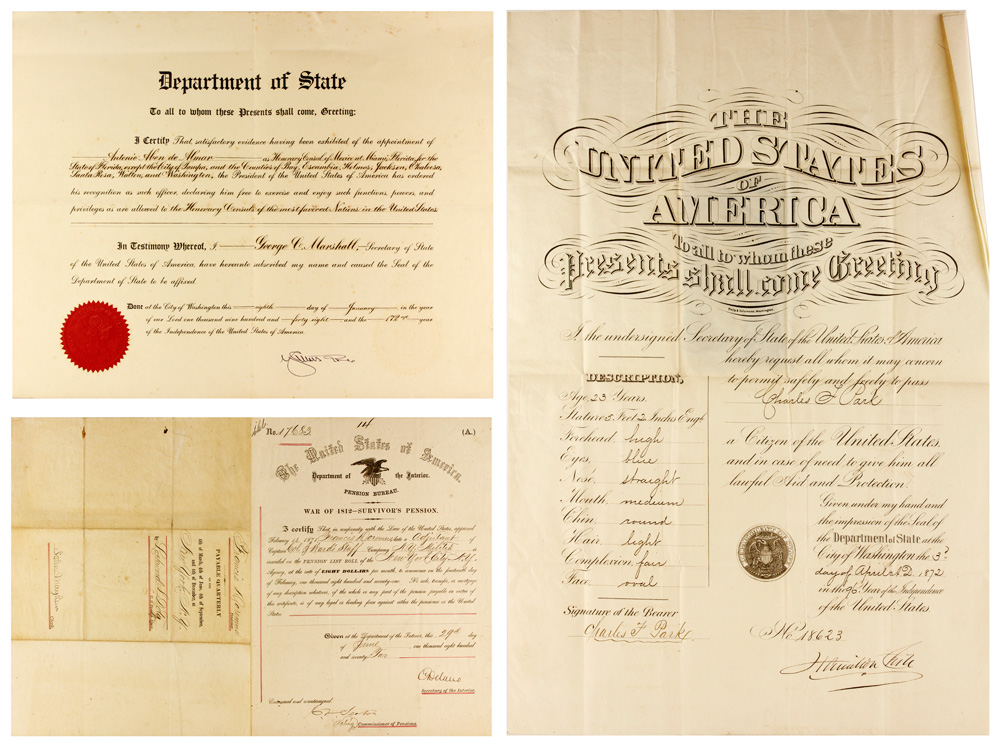 Department of State
To all to whom these Presents shall come, Greeting:
I Certify That, satisfactory evidence having been exhibited of the appointment of
Antonio Aben de Almar as Honorary Consul of Mexico at Miami, Florida, for the
State of Florida, except the City of Tampa, and the Counties of Bay, Escambia, Holmes, Jackson, Okaloosa,
Santa Rosa, Walton, and Washington, the President of the United States of America has ordered
his recognition as such officer, declaring him free to exercise and enjoy such functions, powers, and
privileges as are allowed to the Honorary Consuls of the most favored Nations in the United States.
In Testimony Whereof, I George C. Marshall, Secretary of State
of the United States of America, have hereunto subscribed my name and caused the Seal of the
Department of State to be affixed.
Done at the City of Washington this eighth day of January in the year
of our Lord one thousand nine hundred and forty-eight and the 172nd year
of the Independence of the United States of America.
No. 17683 14 (A.)
The United States of America,
Department of the Interior.
PENSION BUREAU.
WAR OF 1812—SURVIVOR'S PENSION.
I certify That, in conformity with the Law of the United States, approved
February 14, 1871, Francis late a Adjutant of
Captain Staff Company N.Y. Militia is
inscribed on the PENSION LIST ROLL of the New York City, N.Y.
Agency, at the rate of EIGHT DOLLARS per month, to commence on the fourteenth day
of February, one thousand eight hundred and seventy-one. No sale, transfer, or mortgage
of any description whatever, of the whole or any part of the pension payable in virtue of
this certificate, is of any legal or binding force against either the pensioner or the United
States.
Given at the Department of the Interior, this 29th day
of June, one thousand eight hundred
and seventy-two
C Delano
Secretary of the Interior.
Examined and countersigned.
Acting Commissioner of Pensions.
Francis
PAYABLE QUARTERLY
4th of March, 4th of June, 4th of September,
and 4th of December, at
New York City
THE
UNITED STATES
OF
AMERICA
To all to whom these
Presents shall come Greeting
I, the undersigned Secretary of State of the United States of America
hereby request all whom it may concern
to permit safely and freely to pass
Charles F Park
a Citizen of the United States,
and in case of need to give him all
lawful Aid and Protection.
DESCRIPTION,
Age, 23 Years,
Stature, 5 Feet 2 Inches Eng.
Forehead, high
Eyes, blue
Nose, straight
Mouth, medium
Chin, round
Hair, light
Complexion, fair
Face, oval
Signature of the Bearer
Charles F Park
Given under my hand and
the impression of the Seal of
the Department of State at the
City of Washington the 3d
day of April A.D. 1872
in the 96 Year of the Independence
of the United States
No. 18623
Hamilton Fish